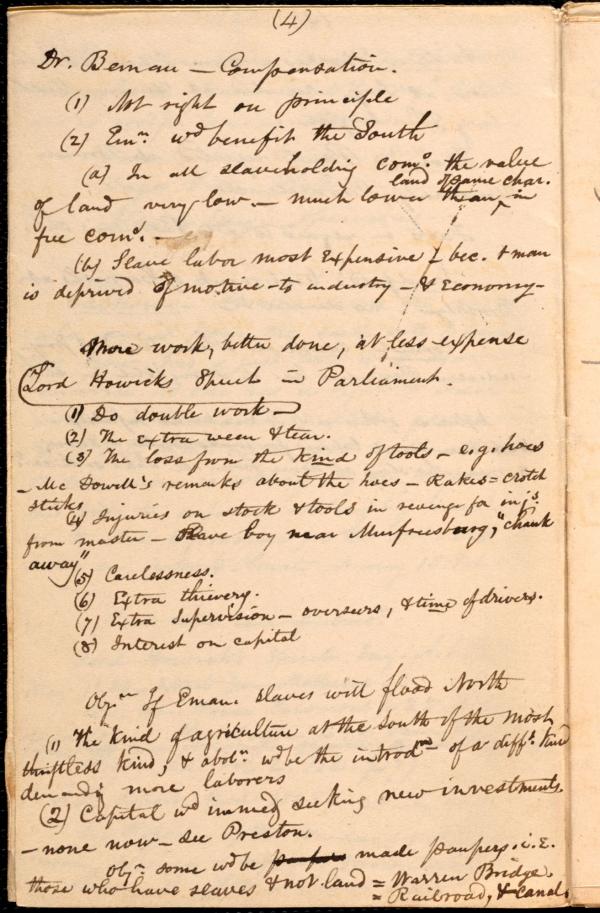 (4)
Dr. Beman – Compensation.
(1) Not right on principle
(2) Emⁿ. wᵈ benefit the South
(a) In all slaveholding comˢ. the value
land of same char.
of land very low. – much lower than in
free comˢ. –
(b) Slave labor most expensive – bec. & man
is deprived of motive – to industry – & economy –
More work, better done, at less expense
Lord Howicks Speech in Parliament.
(1) Do double work –
(2) The extra wear & tear.
(3) The loss from the kind of tools – e.g. hoes
– McDowell's remarks about the hoes – Rakes = crotch
sticks
(4) Injuries on stock & tools in revenge for injˢ.
from master – Slave boy near Murfreesburg, "chunk
away"
(5) Carelessness.
(6) Extra thievery.
(7) Extra Supervision – overseers, & time of drivers.
(8) Interest on capital
Objⁿ If Eman. slaves will flood North
(1) The kind of agriculture at the South of the most
thriftless kind, & abolⁿ. wᵈ be the introdⁿ of a diffᵗ. kind
demandᵍ more laborers
(2) Capital wᵈ immedʸ seeking new investments.
– none now – see Preston.
Objⁿ. some wᵈ be paupers made paupers. i.e.
those who have slaves & not land = Warren Bridge.
= Railroad, & canal.